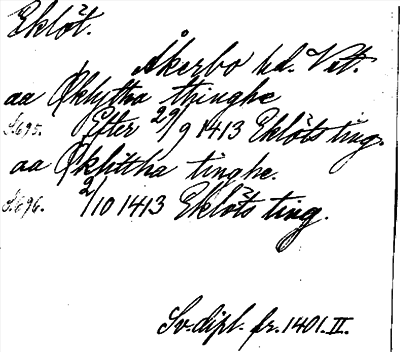 Eklöt.
Åkerbo hd. Vstm.
aa Øklytha thinghe
S. 695. Efter 29/9 1413 Eklöts ting.
aa Øklitha tinghe.
S. 696. 2/10 1413 Eklöts ting.
Sv. dipl. fr. 1401. II.